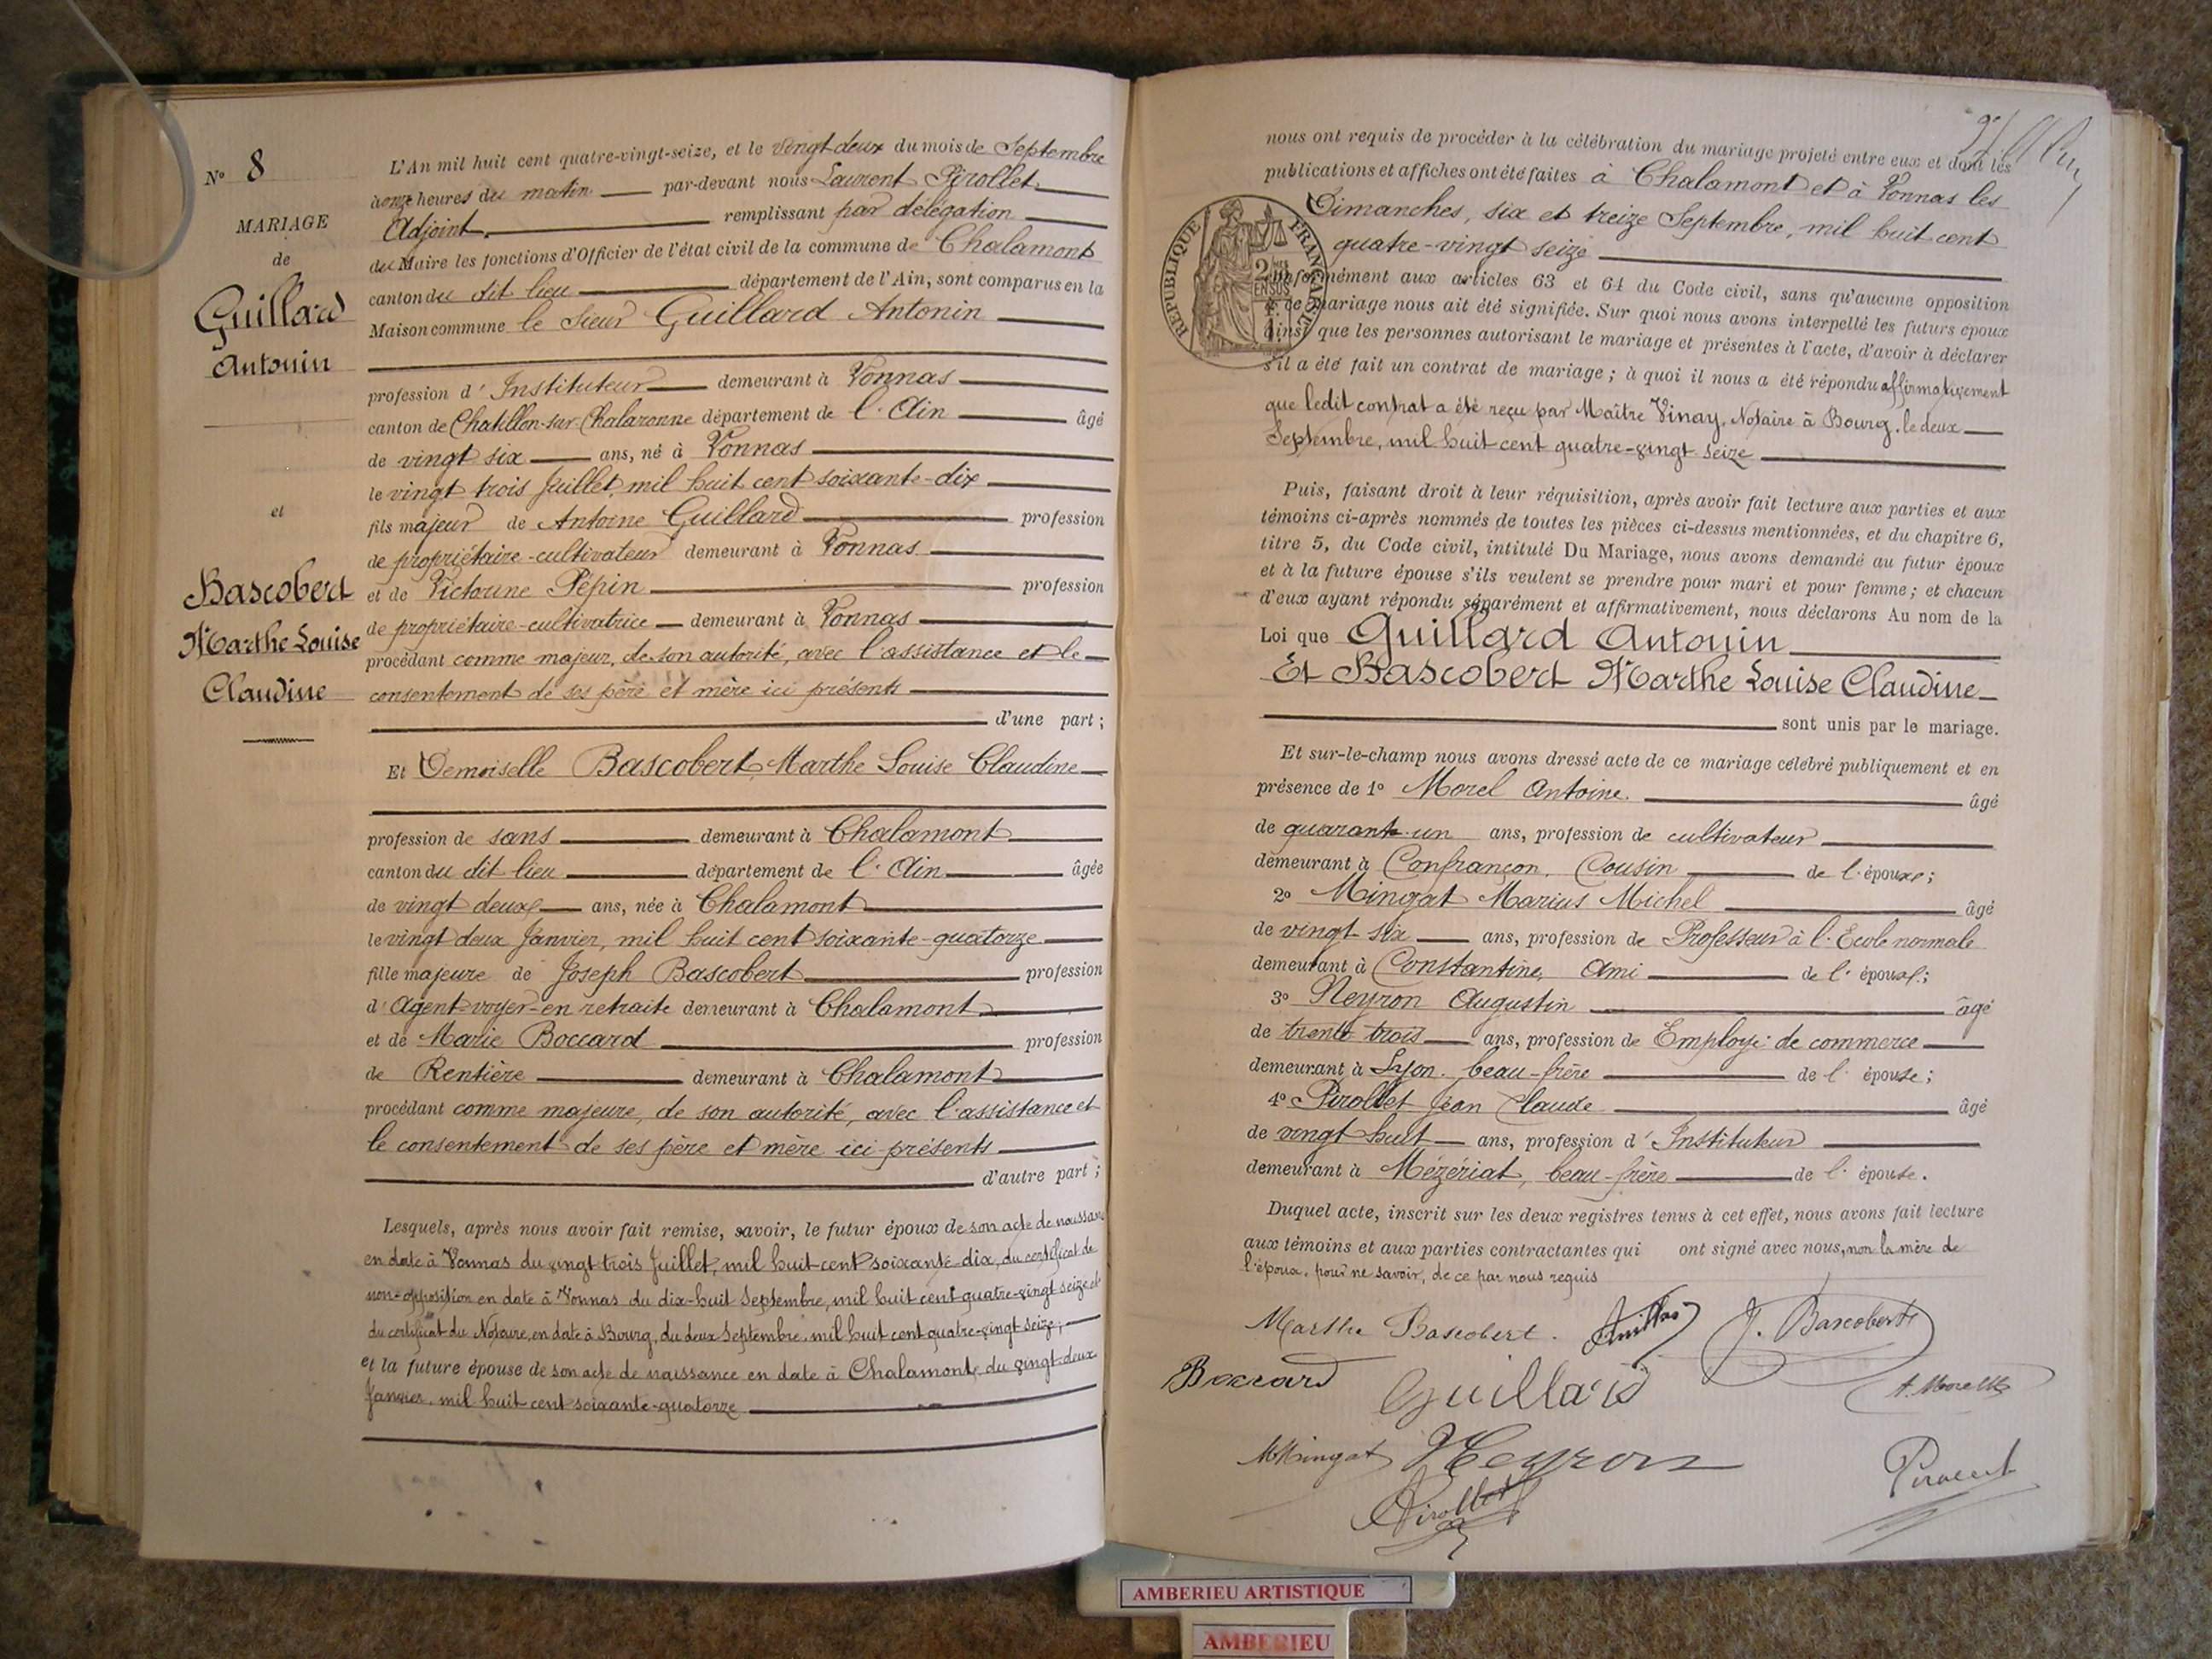 N° 8
MARIAGE
de
Guillard
Antonin
et
Bascobert
Marthe Louise
Claudine
L'An mil huit cent quatre-vingt-seize, et le vingt deux du mois de Septembre
à onze heures du matin par-devant nous Laurent Pirollet
Adjoint remplissant par délégation
du Maire les fonctions d'Officier de l'état civil de la commune de Chalamont
canton du dit lieu département de l'Ain, sont comparus en la
Maison commune le Sieur Guillard Antonin
profession d'Instituteur demeurant à Vonnas
canton de Chatillon-sur-Chalaronne département de l'Ain âgé
de vingt six ans, né à Vonnas
le vingt trois Juillet, mil huit cent soixante-dix
fils majeur de Antoine Guillard profession
de propriétaire-cultivateur demeurant à Vonnas
et de Victorine Pépin profession
de propriétaire-cultivatrice demeurant à Vonnas
procédant comme majeur, de son autorité, avec l'assistance et le
consentement de ses père et mère ici présents
d'une part ;
Et Demoiselle Bascobert, Marthe Louise Claudine
profession de sans demeurant à Chalamont
canton du dit lieu département de l'Ain âgée
de vingt deux ans, née à Chalamont
le vingt deux Janvier, mil huit cent soixante-quatorze
fille majeure de Joseph Bascobert profession
d'Agent-voyer-en retraite demeurant à Chalamont
et de Marie Boccard profession
de Rentière demeurant à Chalamont
procédant comme majeure, de son autorité, avec l'assistance et
le consentement de ses père et mère ici présents
d'autre part ;
Lesquels, après nous avoir fait remise, savoir, le futur époux de son acte de naissance
en date à Vonnas du vingt trois Juillet, mil huit cent soixante-dix, du certificat de
non-opposition en date à Vonnas du dix-huit Septembre, mil huit cent quatre-vingt seize et
du certificat du Notaire, en date à Bourg, du deux Septembre, mil huit cent quatre-vingt seize,
et la future épouse de son acte de naissance en date à Chalamont, du vingt-deux
Janvier, mil huit cent soixante-quatorze
nous ont requis de procéder à la célébration du mariage projeté entre eux et dont les
publications et affiches ont été faites à Chalamont et à Vonnas les
Dimanches, six et treize Septembre, mil huit cent
quatre-vingt seize
RÉPUBLIQUE FRANÇAISE
conformément aux articles 63 et 64 du Code civil, sans qu'aucune opposition
à ce mariage nous ait été signifiée. Sur quoi nous avons interpellé les futurs époux
ainsi que les personnes autorisant le mariage et présentes à l'acte, d'avoir à déclarer
s'il a été fait un contrat de mariage ; à quoi il nous a été répondu affirmativement
que ledit contrat a été reçu par Maître Vinay, Notaire à Bourg, le deux
Septembre, mil huit cent quatre-vingt seize
Puis, faisant droit à leur réquisition, après avoir fait lecture aux parties et aux
témoins ci-après nommés de toutes les pièces ci-dessus mentionnées, et du chapitre 6,
titre 5, du Code civil, intitulé Du Mariage, nous avons demandé au futur époux
et à la future épouse s'ils veulent se prendre pour mari et pour femme ; et chacun
d'eux ayant répondu séparément et affirmativement, nous déclarons Au nom de la
Loi que Guillard Antonin
Et Bascobert Marthe Louise Claudine
sont unis par le mariage.
Et sur-le-champ nous avons dressé acte de ce mariage célébré publiquement et en
présence de 1° Morel Antoine. âgé
de quarante-un ans, profession de cultivateur
demeurant à Confrançon, Cousin de l'époux ;
2° Mingat Marius Michel âgé
de vingt six ans, profession de Professeur à l'Ecole normale
demeurant à Constantine, Ami de l'époux ;
3° Neyron Augustin âgé
de trente trois ans, profession de Employé de commerce
demeurant à Lyon, beau-frère de l'épouse ;
4° Pirollet Jean Claude âgé
de vingt huit ans, profession d'Instituteur
demeurant à Mézériat, beau-frère de l'épouse.
Duquel acte, inscrit sur les deux registres tenus à cet effet, nous avons fait lecture
aux témoins et aux parties contractantes qui ont signé avec nous, non la mère de
l'époux, pour ne savoir, de ce par nous requis
Marthe Bascobert. Guillard J. Bascobert
Boccard Guillard A. Morel
MMingat Neyron
Pirollet Pirollet
AMBERIEU ARTISTIQUE
AMBERIEU